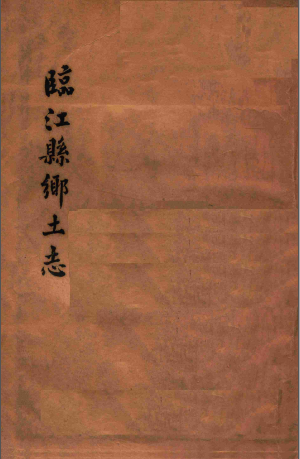 臨江縣鄉土志